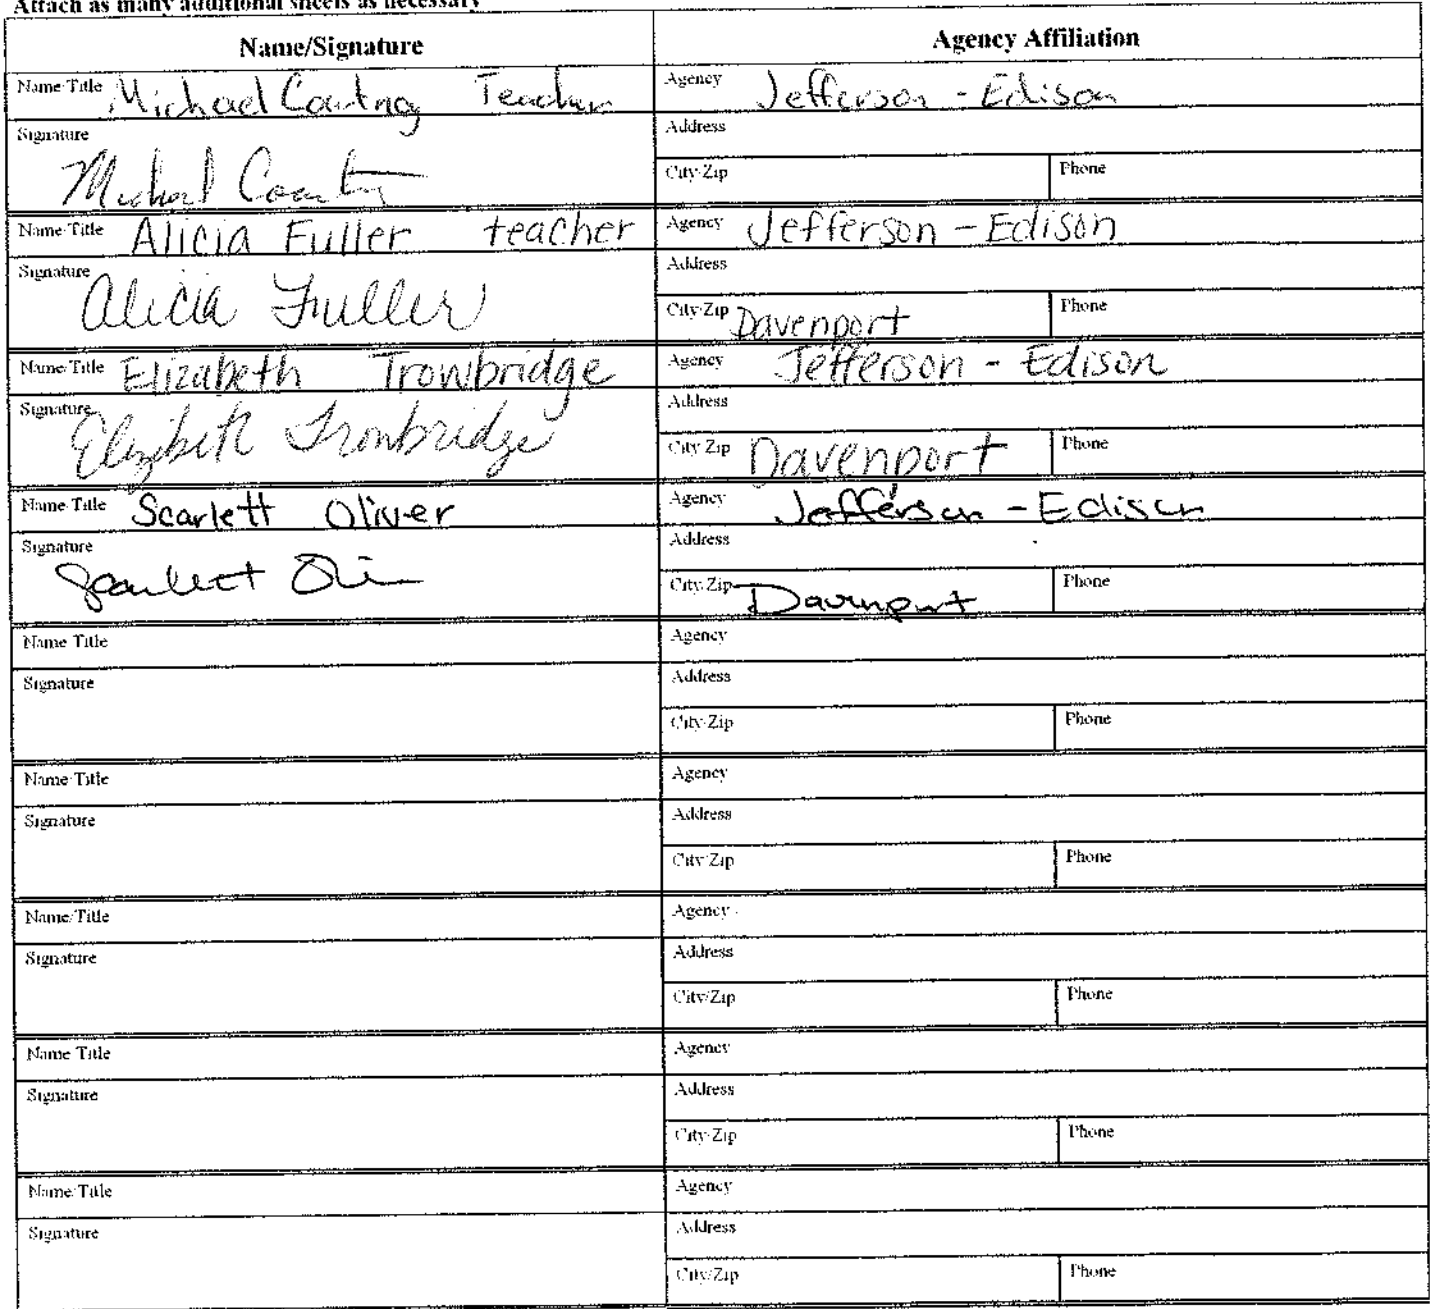 Attach as many additional sheets as necessary
Name/Signature Agency Affiliation
Name/Title Michael Teacher Agency Jefferson - Edison
Signature Address
Michael City/Zip Phone
Name/Title Alicia Fuller teacher Agency Jefferson - Edison
Signature Alicia Fuller Address
City/Zip Davenport Phone
Name/Title Elizabeth Trowbridge Agency Jefferson - Edison
Signature Elizabeth Trowbridge Address
City/Zip Davenport Phone
Name/Title Scarlett Oliver Agency Jefferson - Edison
Signature Address
Scarlett City/Zip Davenport Phone
Name/Title Agency
Signature Address
City/Zip Phone
Name/Title Agency
Signature Address
City/Zip Phone
Name/Title Agency
Signature Address
City/Zip Phone
Name/Title Agency
Signature Address
City/Zip Phone
Name/Title Agency
Signature Address
City/Zip Phone